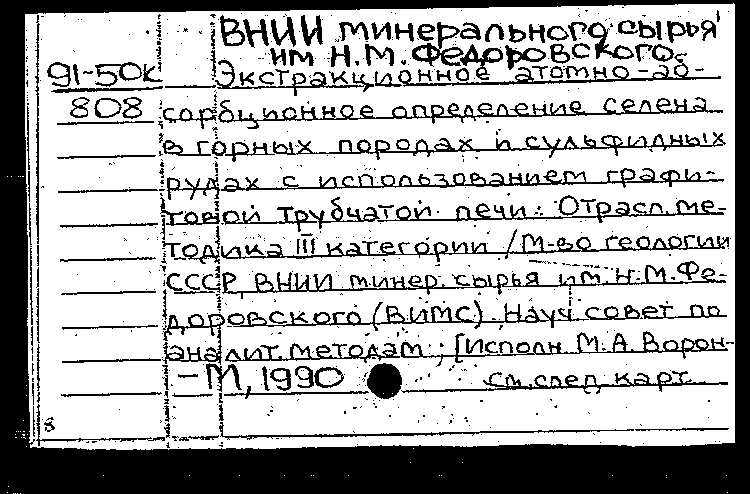 ВНИИ минерального сырья
им Н.М. Федоровского.
91-50к Экстракционное атомно-аб-
808 сорбционное определение селена
в горных породах и сульфидных
рудах с использованием графи-
товой трубчатой печи: Отрасл. ме-
тодика III категории / М-во геологии
СССР, ВНИИ минер. сырья им. Н.М. Фе-
доровского (ВИМС). Науч. совет по
аналит. методам; [Исполн М.А. Ворон-
– М, 1990 См. след. карт.
8